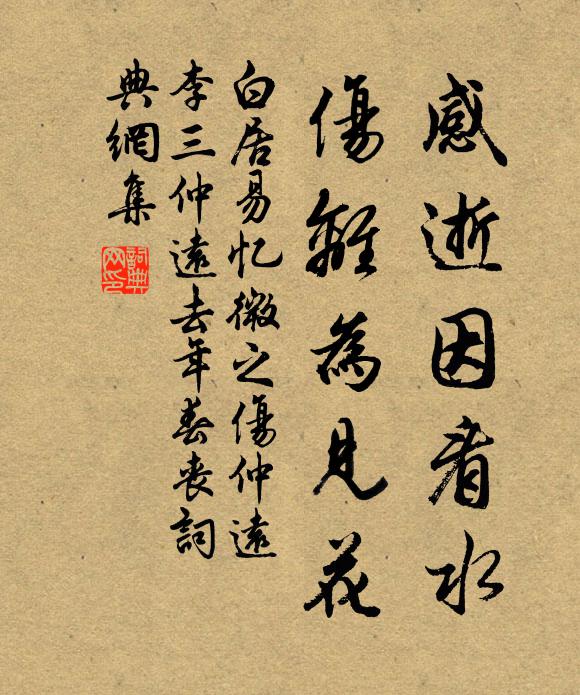 感逝因看水
傷離為見花
白居易忆微之傷仲遠
李三仲遠去年春喪詞
典網集
詞典
网印